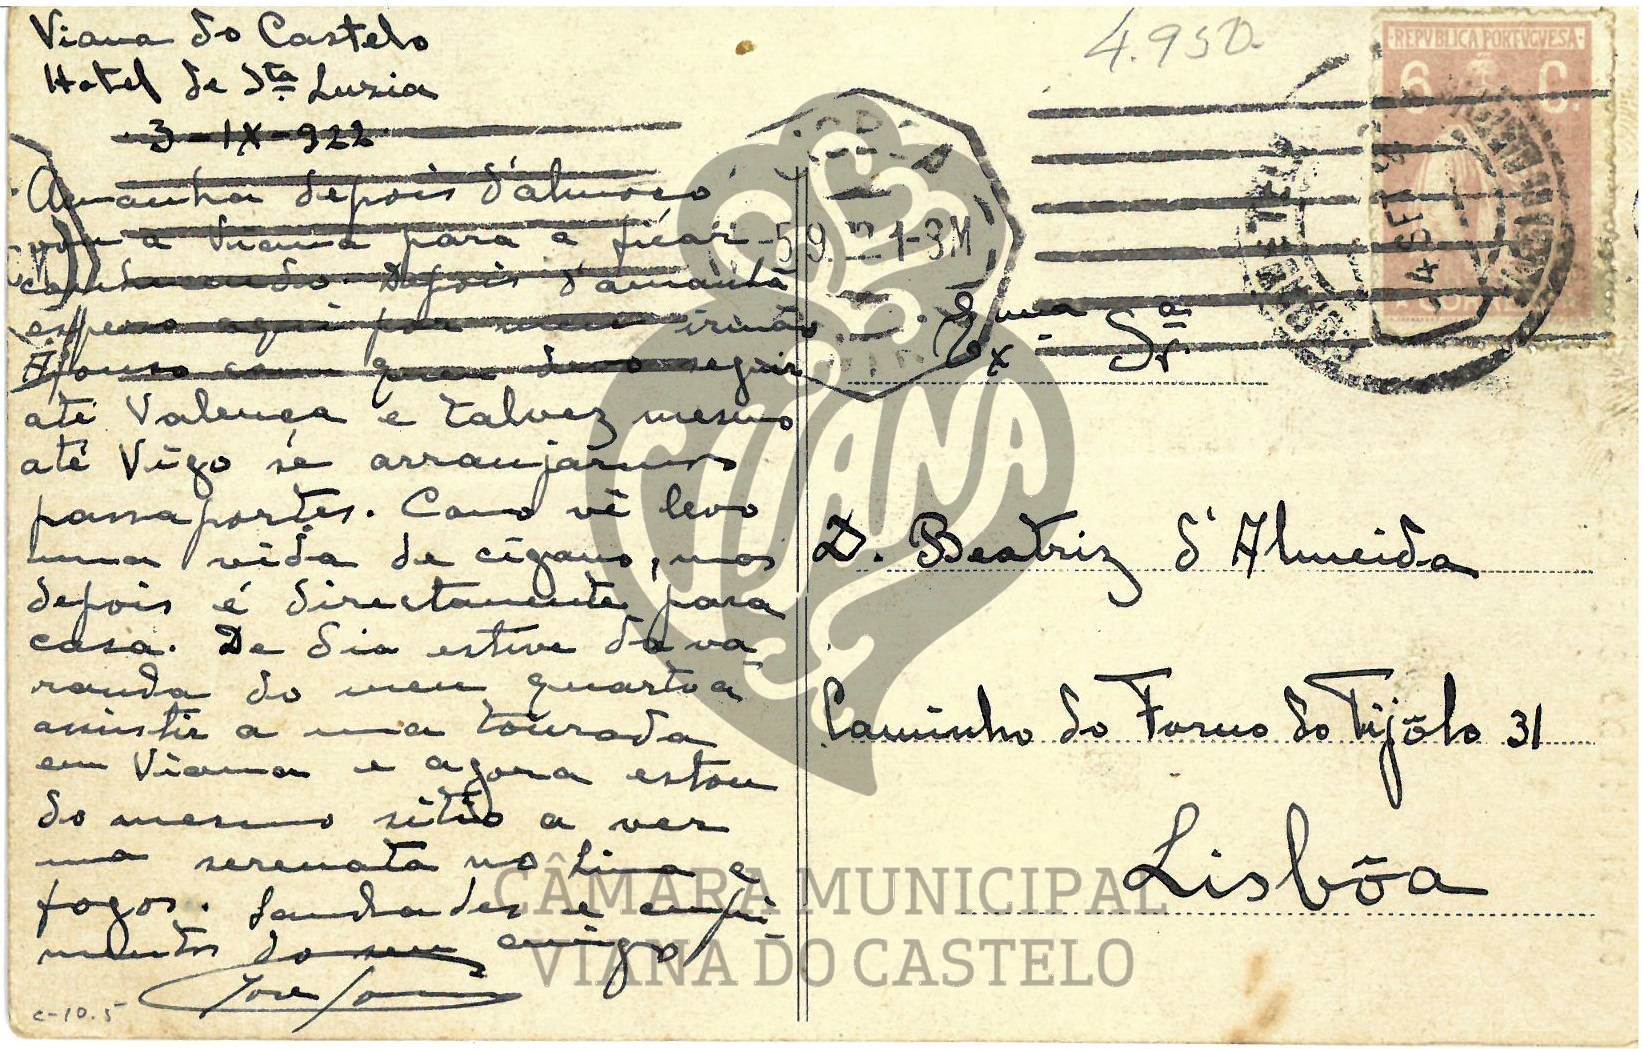 Viana do Castelo
Hotel de Sta Luzia
3-IX-922
Amanha depois d'almoço
vou a Viana para a ficar
conhecendo. Depois d'amanhã
espero aqui por meu irmão
Afonso com quem devo seguir
até Valença e talvez mesmo
até Vigo se arranjarmos
passaportes. Como vê levo
uma vida de cigano, mas
depois é directamente para
casa. De dia estive da va-
randa do meu quarto a
assistir a uma tourada
em Viana e agora estou
do mesmo sitio a ver
uma serenata no Lima e
fogos. Saudades e cumpri-
mentos do seu amigo
José
c-10.5
4.950.
REPVBLICA PORTVGVESA
6 C.
4 SET
-5 9.22 1-3M
Exma Sra
D. Beatriz d'Almeida
Caminho do Forno do Tijôlo 31
Lisbôa
VIANA
CÂMARA MUNICIPAL
VIANA DO CASTELO